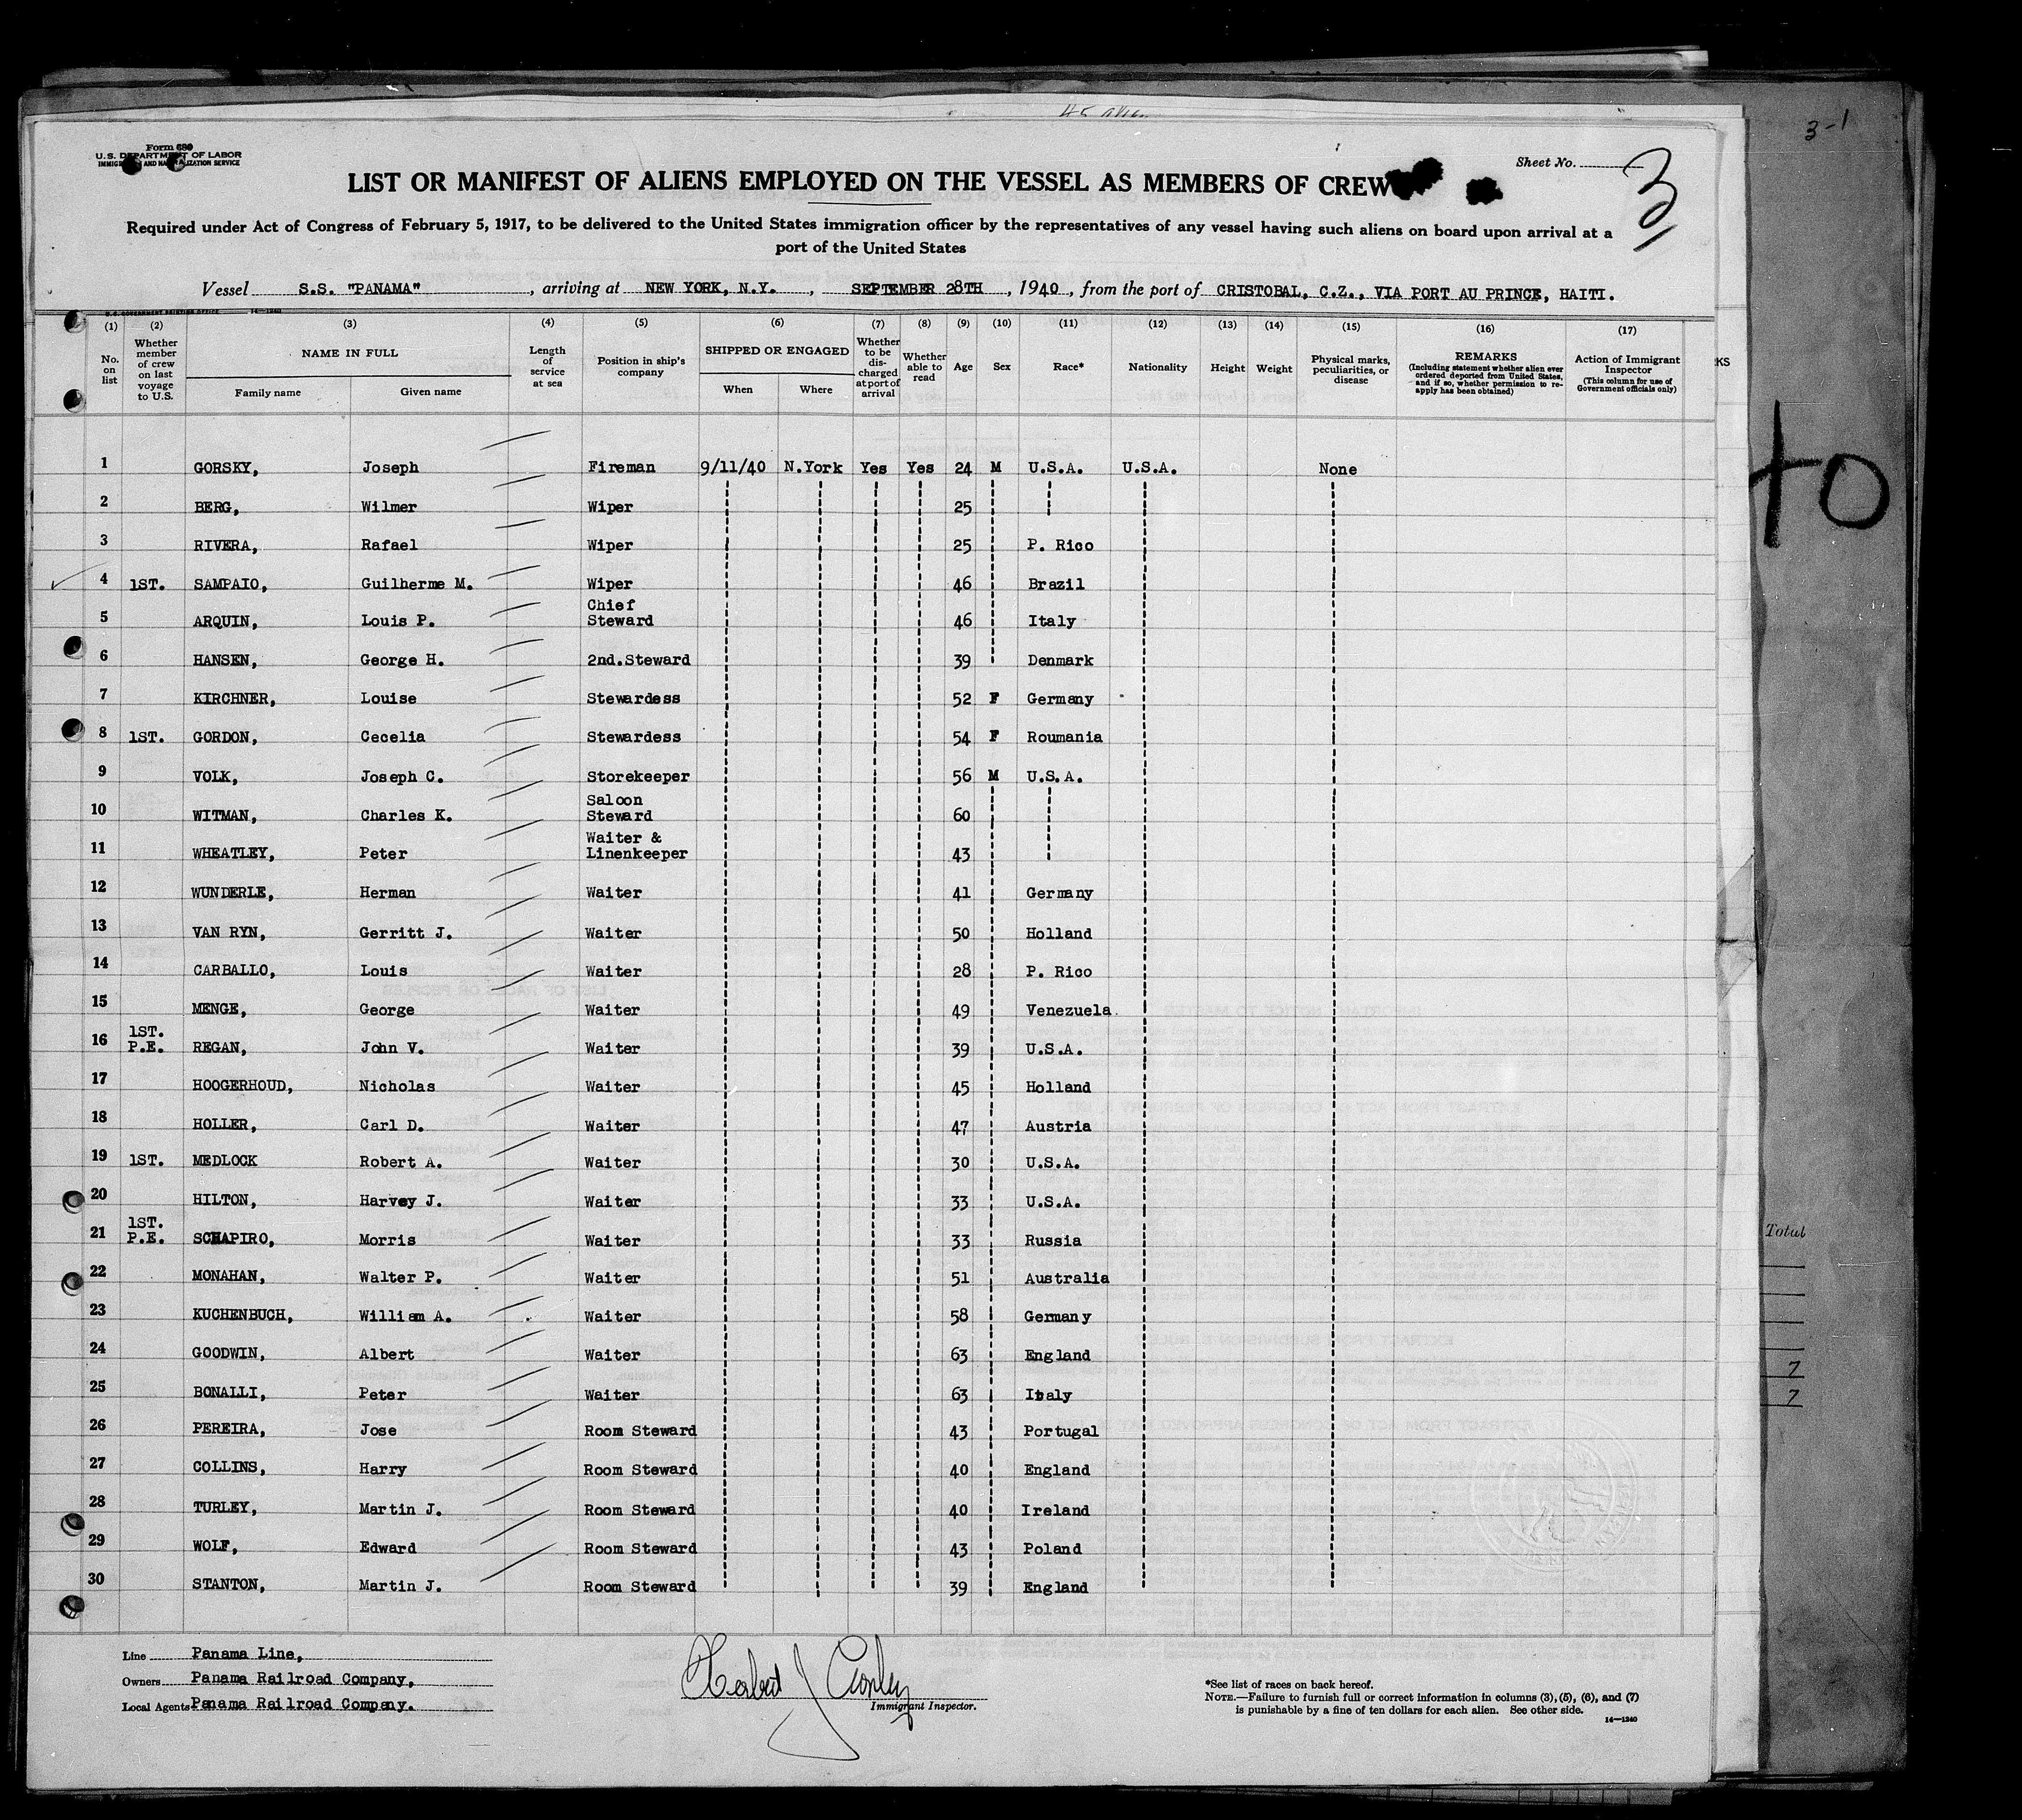 45 alien
3-1
Form 680
U.S. DEPARTMENT OF LABOR
IMMIGRATION AND NATURALIZATION SERVICE
Sheet No. 3
LIST OR MANIFEST OF ALIENS EMPLOYED ON THE VESSEL AS MEMBERS OF CREW
Required under Act of Congress of February 5, 1917, to be delivered to the United States immigration officer by the representatives of any vessel having such aliens on board upon arrival at a
port of the United States
Vessel S.S. "PANAMA", arriving at NEW YORK, N.Y., SEPTEMBER 28TH, 1940, from the port of CRISTOBAL, C.Z., VIA PORT AU PRINCE, HAITI.
U.S. GOVERNMENT PRINTING OFFICE 14—1240
(1) No. on list
(2) Whether member of crew on last voyage to U.S.
(3) NAME IN FULL
Family name
Given name
(4) Length of service at sea
(5) Position in ship's company
(6) SHIPPED OR ENGAGED
When
Where
(7) Whether to be discharged at port of arrival
(8) Whether able to read
(9) Age
(10) Sex
(11) Race*
(12) Nationality
(13) Height
(14) Weight
(15) Physical marks, peculiarities, or disease
(16) REMARKS
(Including statement whether alien ever ordered deported from United States, and if so, whether permission to re-apply has been obtained)
(17) Action of Immigrant Inspector
(This column for use of Government officials only)
KS
1 GORSKY, Joseph Fireman 9/11/40 N.York Yes Yes 24 M U.S.A. U.S.A. None
2 BERG, Wilmer Wiper 25
3 RIVERA, Rafael Wiper 25 P. Rico
4 1ST. SAMPAIO, Guilherme M. Wiper 46 Brazil
5 ARQUIN, Louis P. Chief Steward 46 Italy
6 HANSEN, George H. 2nd.Steward 39 Denmark
7 KIRCHNER, Louise Stewardess 52 F Germany
8 1ST. GORDON, Cecelia Stewardess 54 F Roumania
9 VOLK, Joseph C. Storekeeper 56 M U.S.A.
10 WITMAN, Charles K. Saloon Steward 60
11 WHEATLEY, Peter Waiter & Linenkeeper 43
12 WUNDERLE, Herman Waiter 41 Germany
13 VAN RYN, Gerritt J. Waiter 50 Holland
14 CARBALLO, Louis Waiter 28 P. Rico
15 MENGE, George Waiter 49 Venezuela
16 1ST. P.E. REGAN, John V. Waiter 39 U.S.A.
17 HOOGERHOUD, Nicholas Waiter 45 Holland
18 HOLLER, Carl D. Waiter 47 Austria
19 1ST. MEDLOCK Robert A. Waiter 30 U.S.A.
20 HILTON, Harvey J. Waiter 33 U.S.A.
21 1ST. P.E. SCHAPIRO, Morris Waiter 33 Russia
22 MONAHAN, Walter P. Waiter 51 Australia
23 KUCHENBUCH, William A. Waiter 58 Germany
24 GOODWIN, Albert Waiter 63 England
25 BONALLI, Peter Waiter 63 Italy
26 PEREIRA, Jose Room Steward 43 Portugal
27 COLLINS, Harry Room Steward 40 England
28 TURLEY, Martin J. Room Steward 40 Ireland
29 WOLF, Edward Room Steward 43 Poland
30 STANTON, Martin J. Room Steward 39 England
Total
7
7
Line Panama Line,
Owners Panama Railroad Company,
Local Agents Panama Railroad Company.
Herbert J Conley
Immigrant Inspector.
*See list of races on back hereof.
NOTE.—Failure to furnish full or correct information in columns (3), (5), (6), and (7)
is punishable by a fine of ten dollars for each alien. See other side.
14—1240